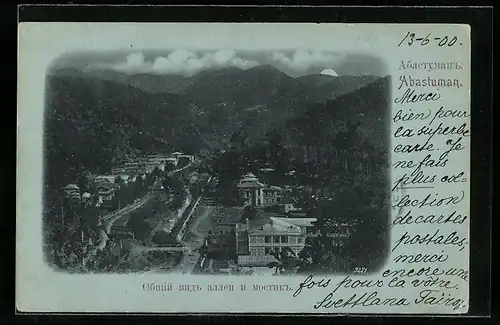 13-6-00.
Абастуманъ.
Abastuman.
Merci
bien pour
la superbe
carte. Je
ne fais
plus col-
lection
de cartes
postales,
merci
encore une
fois pour la vôtre.
Svettlana
3271
Общій видъ аллеи и мостикъ.